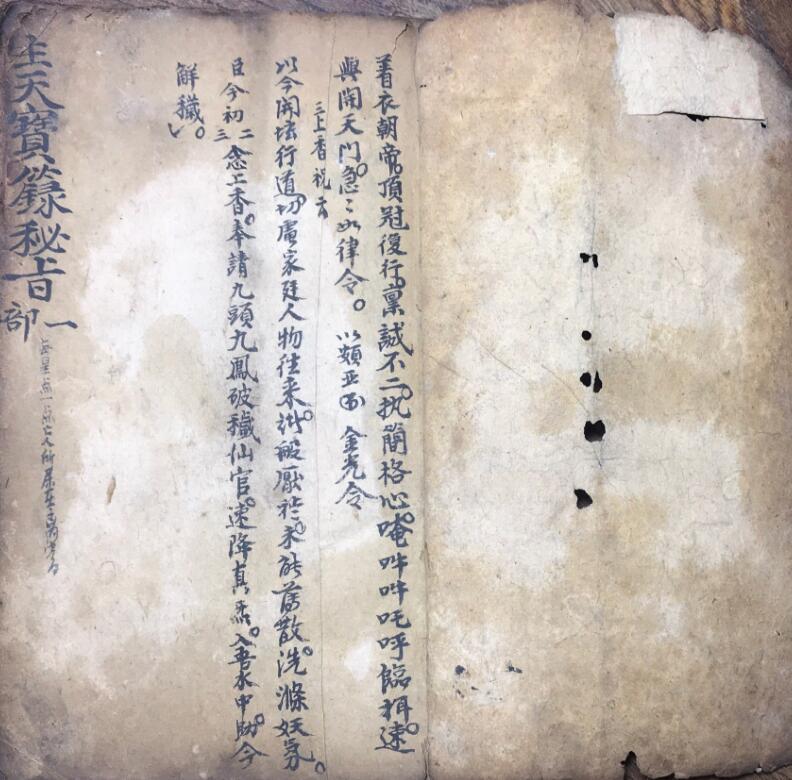 着衣朝帝。頂冠復行。稟誠不二。执簡格心。唵吽吽吒呼臨稱速。
與開天門。急〻如律令。 金光令
三上香祝云
以今開坛行道。切慮家廷人物往来。厭穢。未能蕩散。洗滌妖氛。
臣今初二三念上香。奉請九頭九鳳破穢仙官。速降真炁。入吾水中。助今
解穢。
主天寶籙秘旨一部